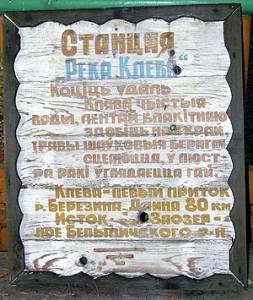 Станция
„Река Клева“
Коціць удаль
Клява чыстыя
воды, лентай блакітнаю
здобіць наш край,
травы шаўковыя берагам
сцелюцца, у люст-
ра ракі углядаецца гай.
Клева-левый приток
р. Березина. Длина 80 км
Исток- Заозер-
ное Белыничского р-а